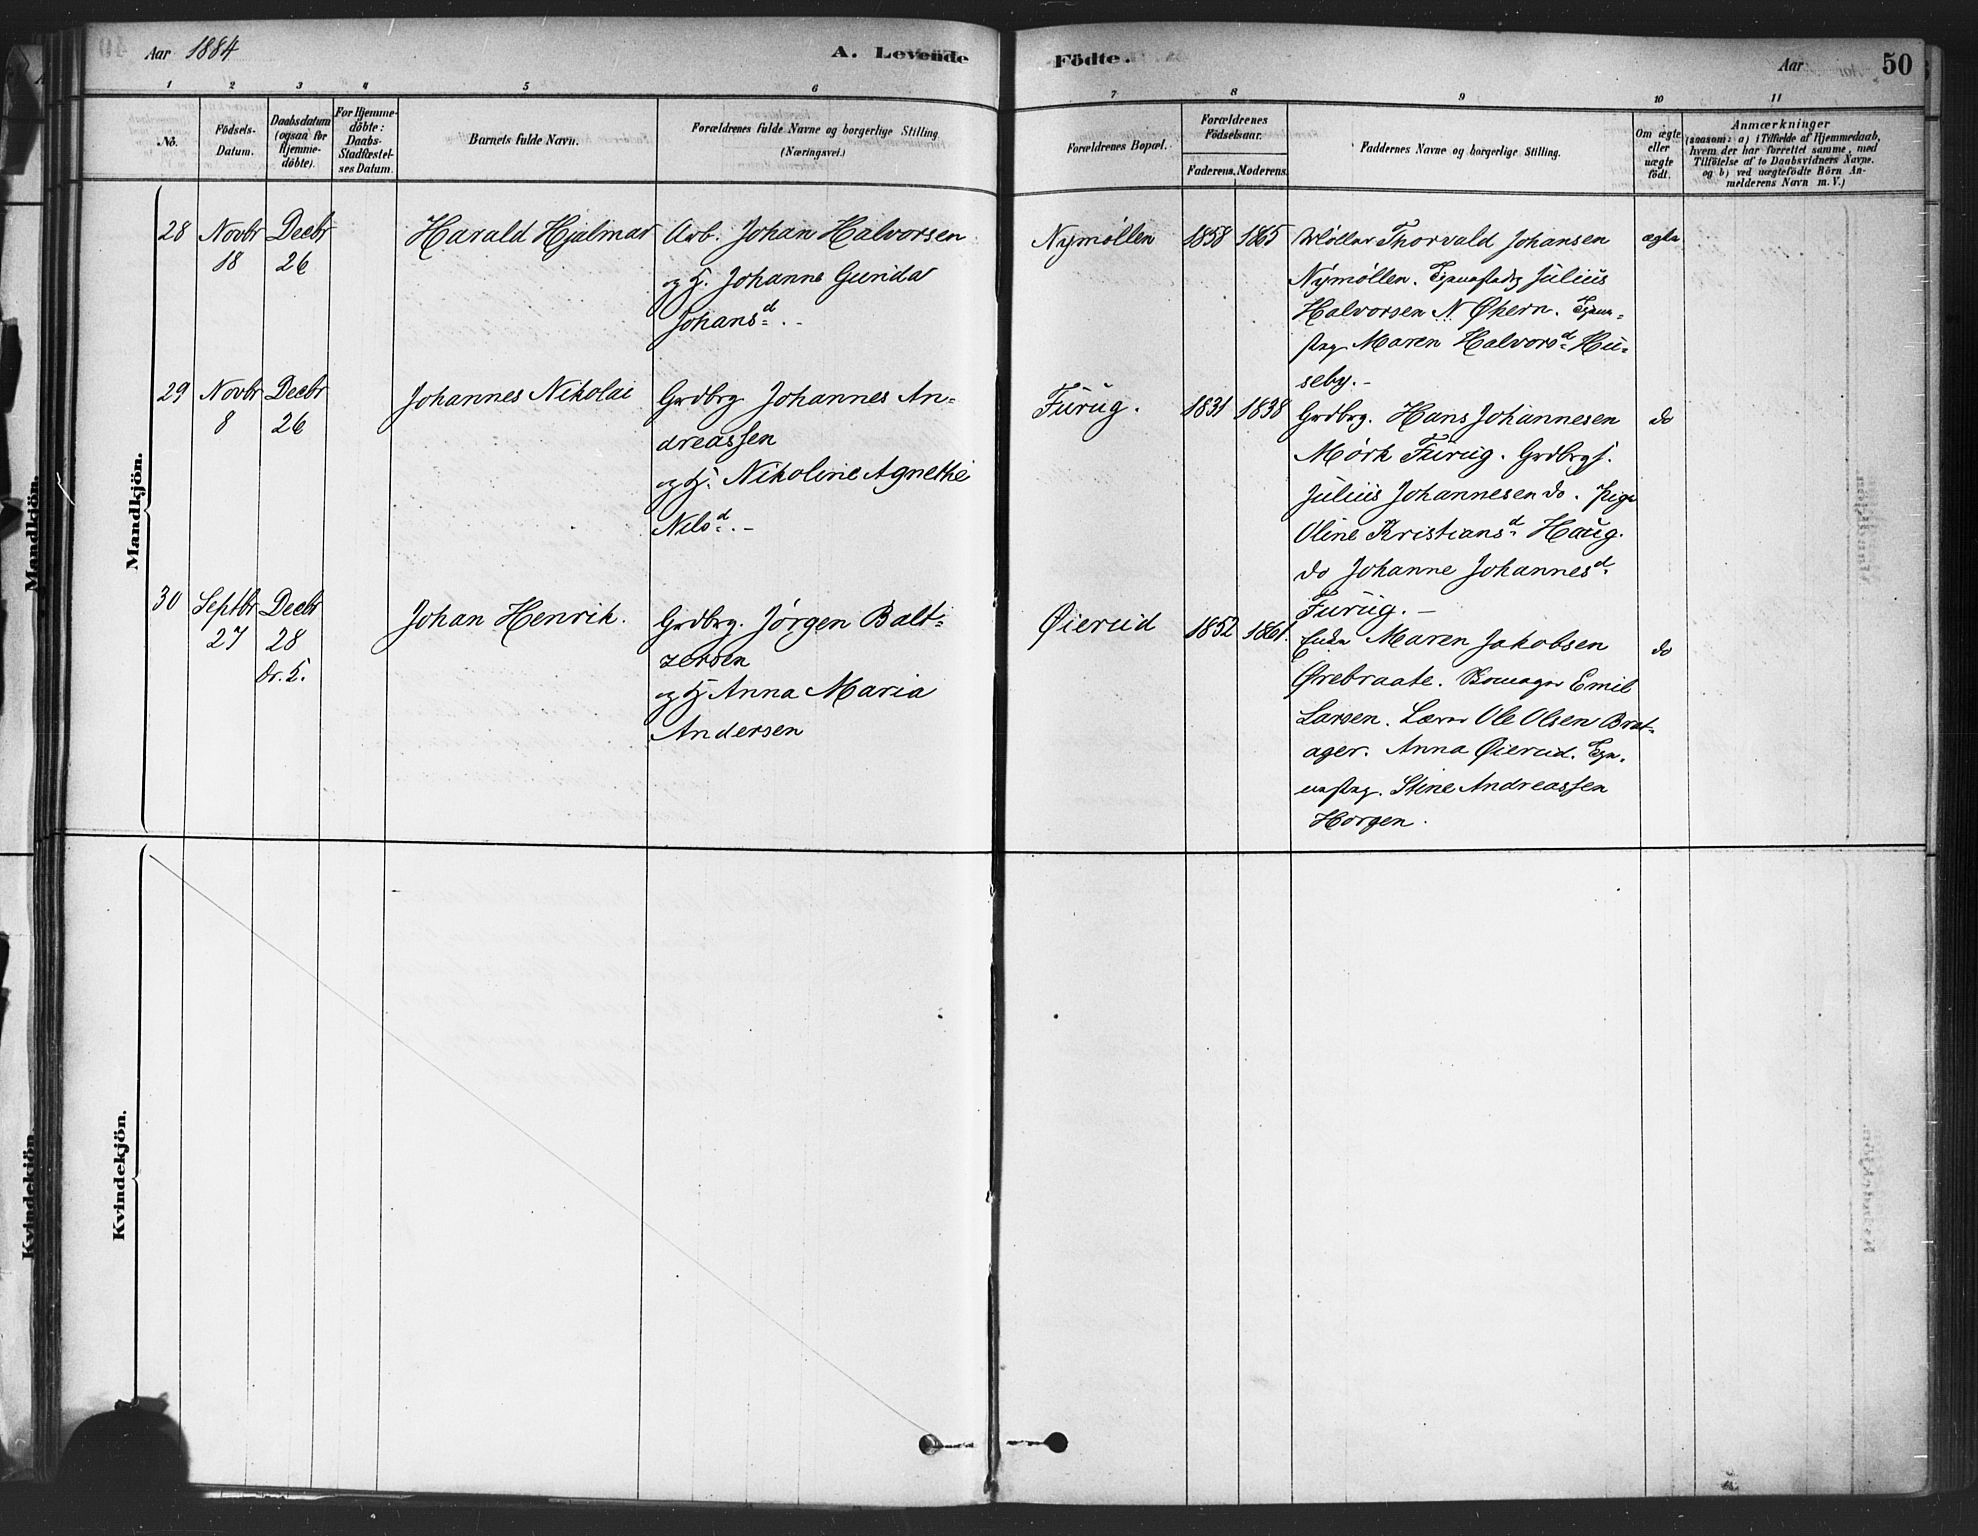 Aar 1884
A. Levende
Födte.
Aar
50
1 2 3 4 5 6 7 8 9 10 11
No.
Födsels-
Datum.
Daabsdatum
(ogsaa for
Hjemme-
döbte).
For Hjemme-
döbte:
Daabs-
Stadfæstel-
ses Datum.
Barnets fulde Navn.
Forældrenes fulde Navne og borgerlige Stilling
(Næringsvei.)
Forældrenes Bopæl.
Forældrenes
Födselsaar.
Faderens. Moderens.
Faddernes Navne og borgerlige Stilling.
Om ægte
eller
uægte
födt.
Anmærkninger
(saasom: a) i Tilfælde af Hjemmedaab,
hvem der har forrettet samme, med
Tilföielse af to Daabsvidners Navne.
og b) ved uægtefödte Börn An-
melderens Navn m. V.)
Mandkjön.
28
Novbr
18
Decbr
26
Harald Hjalmar
Arb. Johan Halvorsen
og H. Johanne Gunida
Johans d. -
Nymøllen
1858
1865
Møller Thorvald Johansen
Nymøllen. Julius
Halvorsen N Øhern.
Maren Halvorsd. Hu-
seby. -
ægte
29
Novbr
8
Decbr
26
Johannes Nikolai
Grdbrg Johannes An-
dreassen
og H. Nikoline Agnethe
Nilsd. -
Furug.
1831
1838
Grdbrg. Hans Johannesen
Mørk Furug. Grdbrgs.
Julius Johannesen do. Pige
Oline Kristiansd. Haug.
do Johanne Johannesd.
Furug. -
do
30
Septbr
27
Decbr
28
Dr. K.
Johan Henrik.
Grdbrg. Jørgen Balt-
zersen
og H Anna Maria
Andersen
Øierud
1852
1861.
Enke Maren Jakobsen
Ørebraate. Emil
Larsen. Lærer Ole Olsen Brat-
ager. Anna Øierud.
Stine Andreassen
Horgen.
do
Kvindekjön.
Mandkjön.
Kvindekjön.